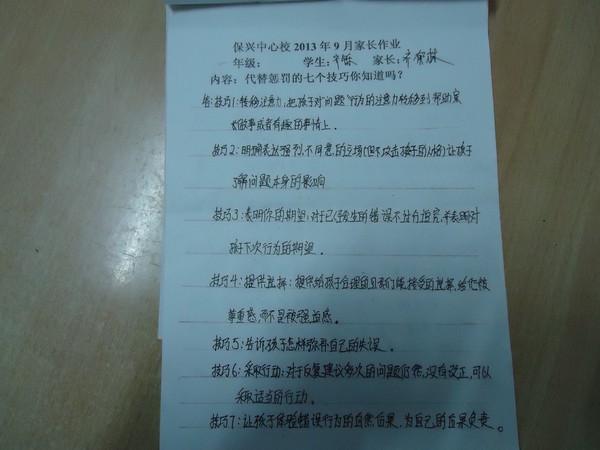 保兴中心校 2013 年 9 月家长作业
年级： 学生： 家长：
内容：代替惩罚的七个技巧你知道吗？
答：技巧1：转移注意力，把孩子对问题行为的注意力转移到帮助家
长做事或者有趣的事情上。
技巧2：明确表达强烈不同意的立场（但不攻击孩子的人格）让孩子
了解问题本身的影响
技巧3：表明你的期望：对于已经发生的错误不过有追究，并表明对
孩子下次行为的期望。
技巧4：提供选择：提供给孩子合理的且我们能接受的选择，给他被
尊重感，而不是被强迫感。
技巧5：告诉孩子怎样弥补自己的失误。
技巧6：采取行动：对于反复建议多次的问题仍然没有改正，可以
采取适当的行动。
技巧7：让孩子体验错误行为的自然后果，为自己的后果负责。